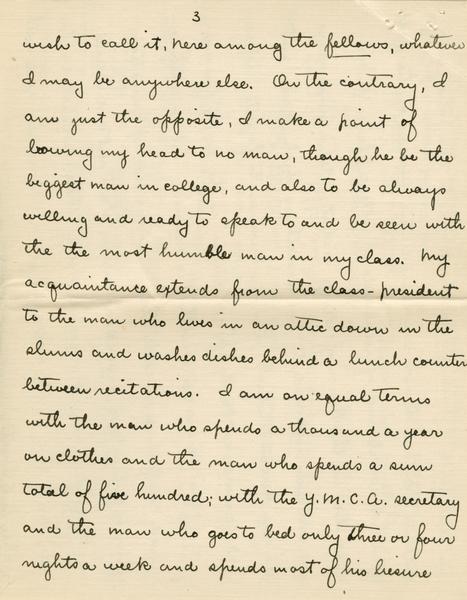 3
wish to call it, here among the fellows, whatever
I may be anywhere else. On the contrary, I
am just the opposite, I make a point of
bowing my head to no man, though he be the
biggest man in college, and also to be always
willing and ready to speak to and be seen with
the the most humble man in my class. My
acquaintance extends from the class-president
to the man who lives in an attic down in the
slums and washes dishes behind a lunch counter
between recitations. I am on equal terms
with the man who spends a thousand a year
on clothes and the man who spends a sum
total of five hundred; with the Y.M.C.A. secretary
and the man who goes to bed only three or four
nights a week and spends most of his liesure